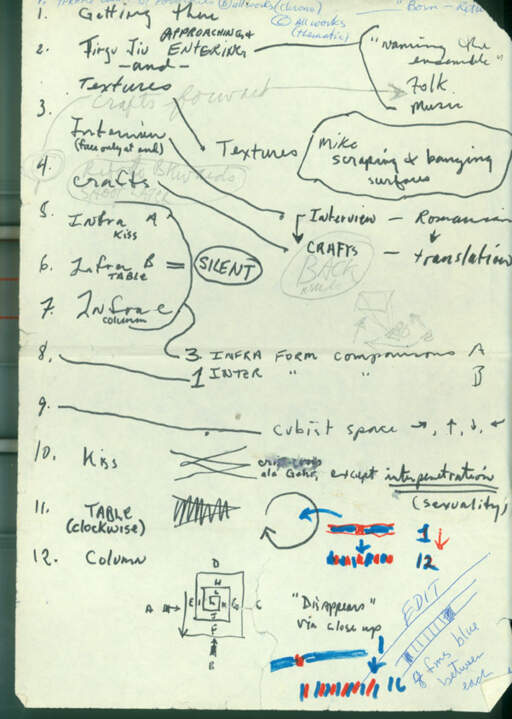 all works (chrono)
"Born - Retu
all works
(thematic)
1. Getting There
2. Tirgu Jiu
APPROACHING +
ENTERING
-and-
Textures
"naming the
ensemble"
Folk
Music
Crafts forward
3. Interview
(face only at end)
Textures
Mike
scraping & banging
surfaces
4. crafts
5. Infra A
Kiss
Interview - Romanian
CRAFTS - translation
BACK
6. Infra B = SILENT
TABLE
7. Infra C
column
8. 3 INFRA FORM comparisons A
1 INTER " " B
9. cubist space →, ↑, ↓, ←
10. Kiss
except interpenetration
(sexuality)
11. TABLE
(clockwise)
1
12
12. Column
D
H
L
E I K G
J
F
A
C
B
"Disappears"
via close up
1
16
EDIT
8 fms blue
between
each